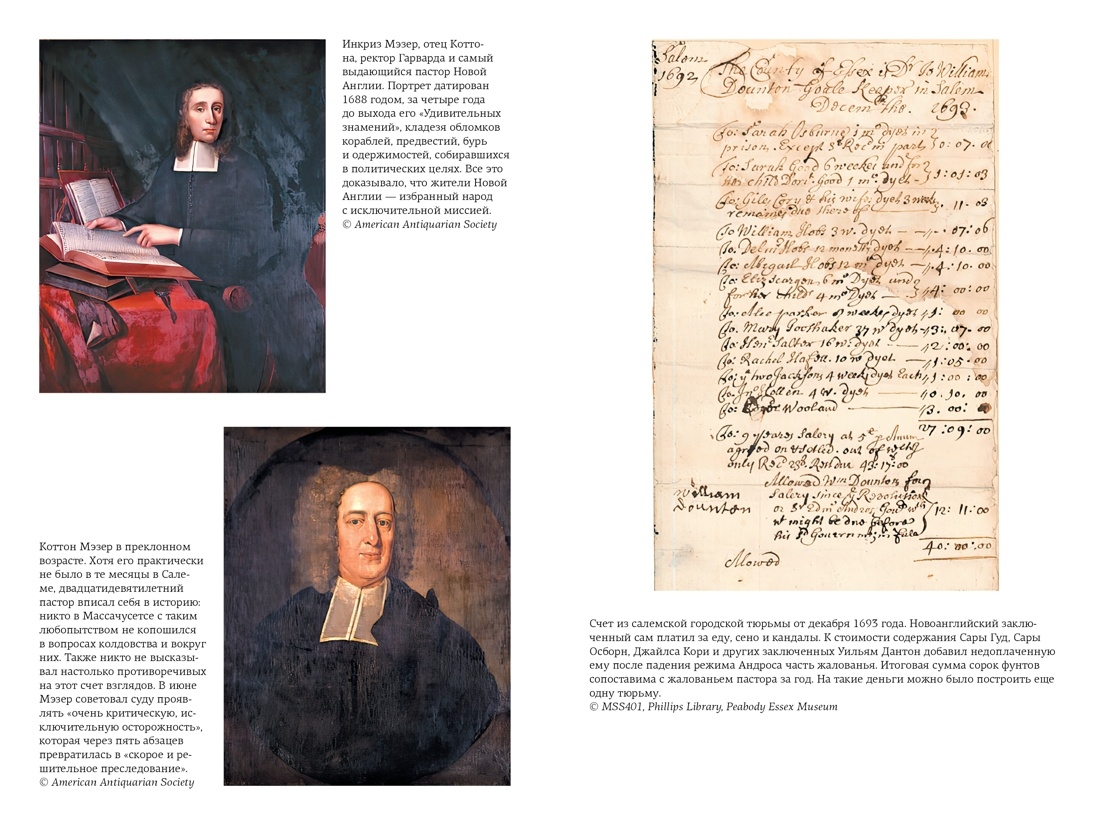 Инкриз Мэзер, отец Котто-
на, ректор Гарварда и самый
выдающийся пастор Новой
Англии. Портрет датирован
1688 годом, за четыре года
до выхода его «Удивительных
знамений», кладезя обломков
кораблей, предвестий, бурь
и одержимостей, собиравшихся
в политических целях. Все это
доказывало, что жители Новой
Англии — избранный народ
с исключительной миссией.
© American Antiquarian Society
Коттон Мэзер в преклонном
возрасте. Хотя его практически
не было в те месяцы в Сале-
ме, двадцатидевятилетний
пастор вписал себя в историю:
никто в Массачусетсе с таким
любопытством не копошился
в вопросах колдовства и вокруг
них. Также никто не высказы-
вал настолько противоречивых
на этот счет взглядов. В июне
Мэзер советовал суду прояв-
лять «очень критическую, ис-
ключительную осторожность»,
которая через пять абзацев
превратилась в «скорое и ре-
шительное преследование».
© American Antiquarian Society
Salem
1692
The County of Essex is Dr To William
Dounton Goale Keeper in Salem
Decem the. 1693.
To: Sarah Osburne
prison. Except
To: Sarah Good 6 weekes and for
her child Good 1 mo. dyet 1:01:03
To: Cory & his wife dyet 3 weeks
To William Hobs 3 w. dyet 07:06
Hobs 12 months dyet 4:10:00
To: Abigail Hobs 12 m dyet 4:10:00
6 mo Dyet and
for her child 4 mo Dyet 4:00:00
parker 8 weekes dyet 1: 00 00
To. Mary 37 w dyet 3:07:00
Salter 16 w: dyet 2:00:00
To: Rachel 10 w dyet 1:05:00
two Jacksons 4 weeks dyet Each 1:00:00
4 w. dyet 0.10.00
3.00:00
27:09:00
To: 9 yeares Salery at 5
agreed on
only
Allowed Wm Dounton for
Salery since
might be due before
12:11:00
William
Dounton
40:00:00
Allowed
Счет из салемской городской тюрьмы от декабря 1693 года. Новоанглийский заклю-
ченный сам платил за еду, сено и кандалы. К стоимости содержания Сары Гуд, Сары
Осборн, Джайлса Кори и других заключенных Уильям Дантон добавил недоплаченную
ему после падения режима Андроса часть жалованья. Итоговая сумма сорок фунтов
сопоставима с жалованьем пастора за год. На такие деньги можно было построить еще
одну тюрьму.
© MSS401, Phillips Library, Peabody Essex Museum